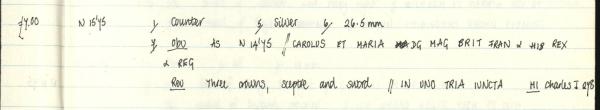 £4.00 N 15'45 1/ Counter 5/ Silver 6/ 26.5 mm
7/ Obv As N 14'45 // CAROLUS ET MARIA DG MAG BRIT FRAN & HIB REX
& REG
Rev Three crowns, sceptre and sword // IN UNO TRIA IUNCTA MI Charles I